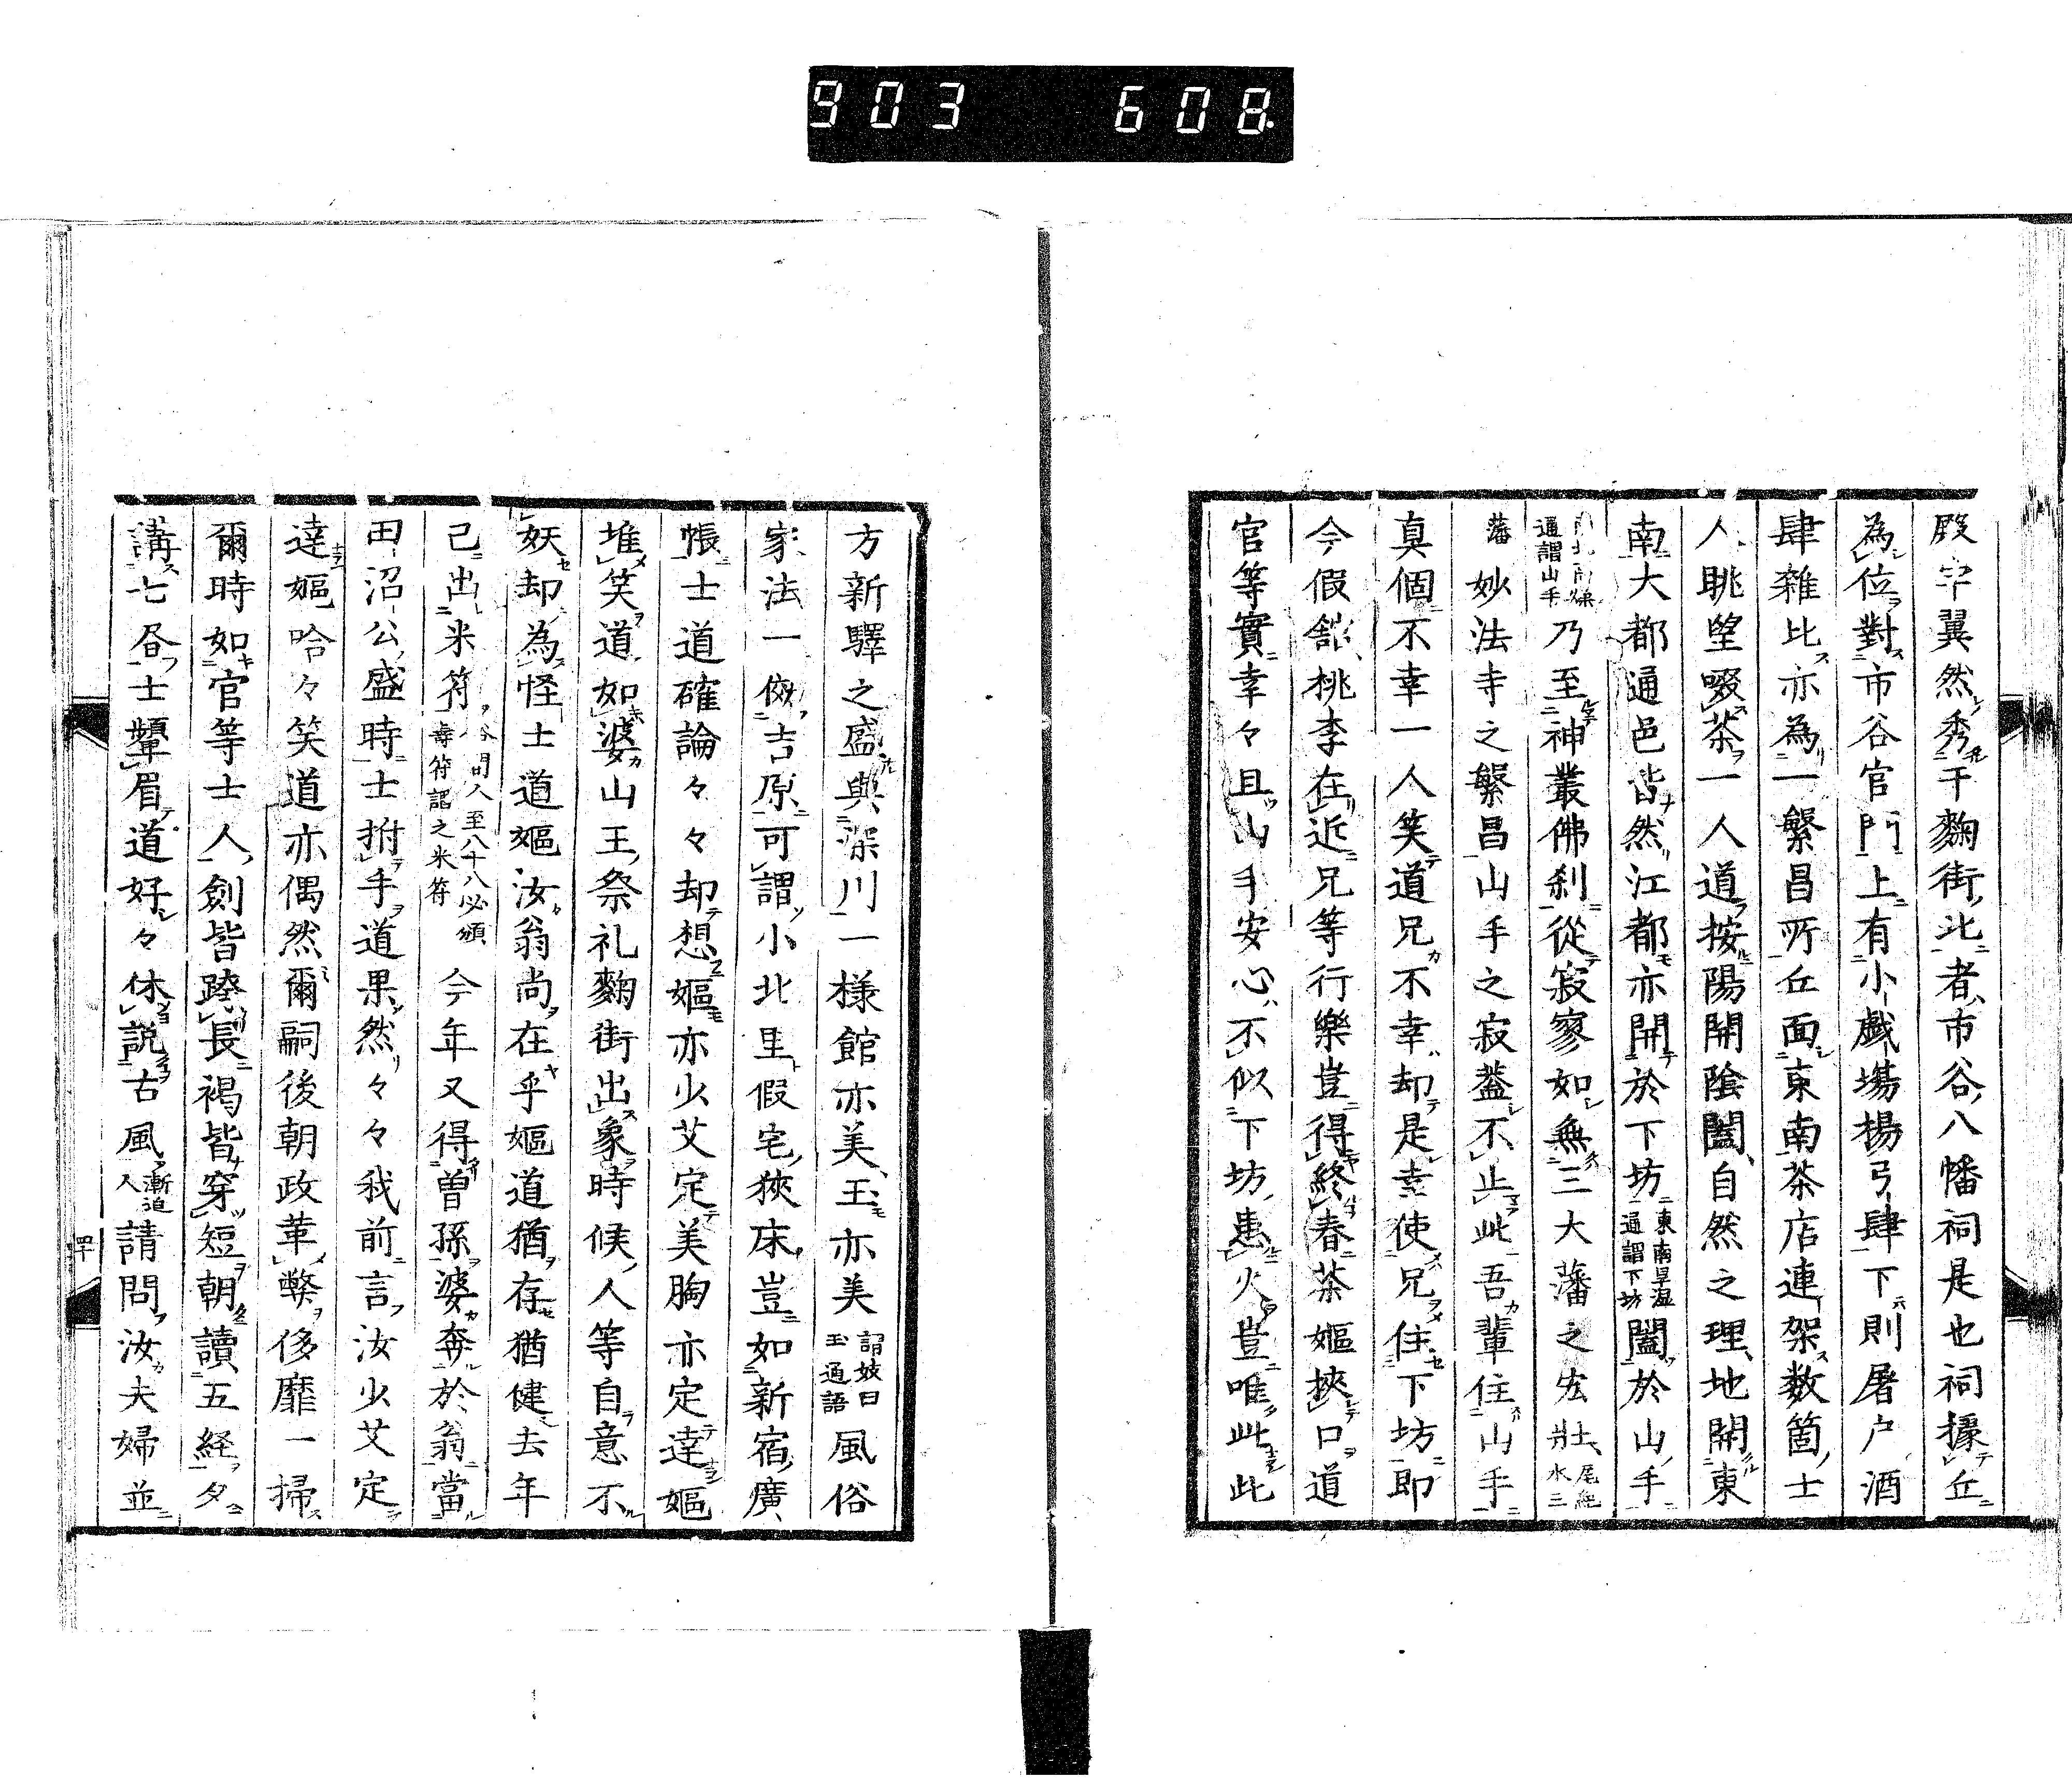 903 608
殿宇翼然秀于麴街北者市谷八幡祠是也祠據丘
為位對市谷官門上有小戲場楊弓肆下則屠戶酒
肆雜比亦為一繁昌所丘面東南茶店連架数箇士
人眺望啜茶一人道按陽開陰闔自然之理地開東
南大都通邑皆然江都亦開於下坊東南卑湿通謂下坊闔於山手
通謂山手乃至神叢佛刹從寂寥如無三大藩之宏壯尾紀水三
藩妙法寺之繁昌山手之寂蓋不止此吾輩住山手
真個不幸一人笑道兄不幸却是幸使兄住下坊即
今假舘桃李在近兄等行樂豈得終春茶嫗挾口道
官等實幸々且山手安心不似下坊患火豈唯此此
方新驛之盛與深川一樣館亦美玉亦美謂妓曰玉通語風俗
家法一倣吉原可謂小北里假宅狹床豈如新宿廣
帳士道確論々々却想嫗亦少艾定美胸亦定達嫗
堆笑道如婆山王祭礼麴街出象時候人等自意不
妖却為怪士道嫗汝翁尚在乎嫗道猶存猶健去年
已出米符俗間人至八十八必頒壽符謂之米符今年又得曽孫婆奔於翁當
田沼公盛時士拊手道果然々々我前言汝少艾定
達嫗哈々笑道亦偶然爾嗣後朝政革弊侈靡一掃
爾時如官等士人劍皆跨長褐皆穿短朝讀五経夕
講七昏士顰眉道好々休説古風漸迫人請問汝夫婦並
四十